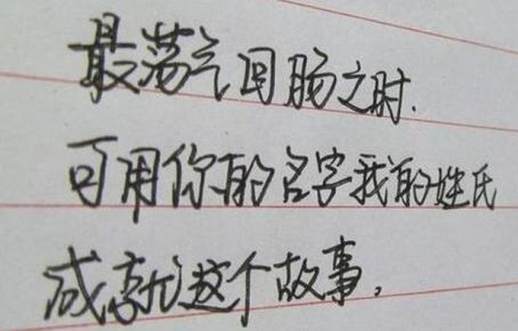 最荡气回肠之时.
可用你的名字我的姓氏
成就这个故事,